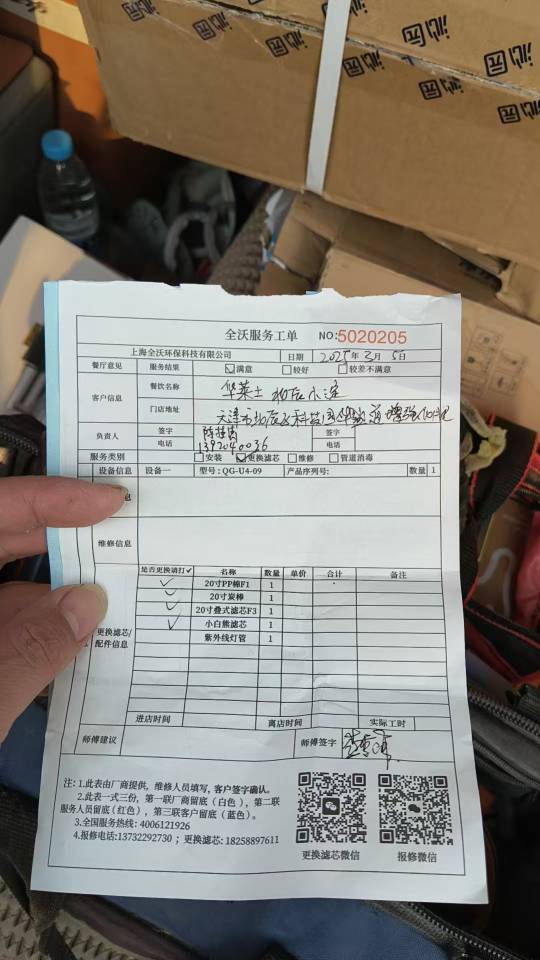 沁园
沁园
沁园
沁园
沁园
沁园
沁园
全沃服务工单 NO:5020205
上海全沃环保科技有限公司 日期 2025年3月5日
餐厅意见 服务结果 ☑满意 □较好 □较差不满意
客户信息 餐饮名称 华莱士
门店地址 天津市
负责人 签字 签字
电话 电话
服务类别 □安装 ☑更换滤芯 □维修 □管道消毒
设备信息 设备一 型号:QG-U4-09 产品序列号: 数量 1
维修信息
是否更换请打✓ 名称 数量 单价 合计 备注
✓ 20寸PP棉F1 1
✓ 20寸炭棒 1
✓ 20寸叠式滤芯F3 1
✓ 小白熊滤芯 1
紫外线灯管 1
更换滤芯/
配件信息
进店时间 离店时间 实际工时
师傅建议 师傅签字
注:1.此表由厂商提供,维修人员填写,客户签字确认。
2.此表一式三份,第一联厂商留底(白色),第二联
服务人员留底(红色),第三联客户留底(蓝色)。
3.全国服务热线:4006121926
4.报修电话:13732292730;更换滤芯:18258897611
更换滤芯微信 报修微信